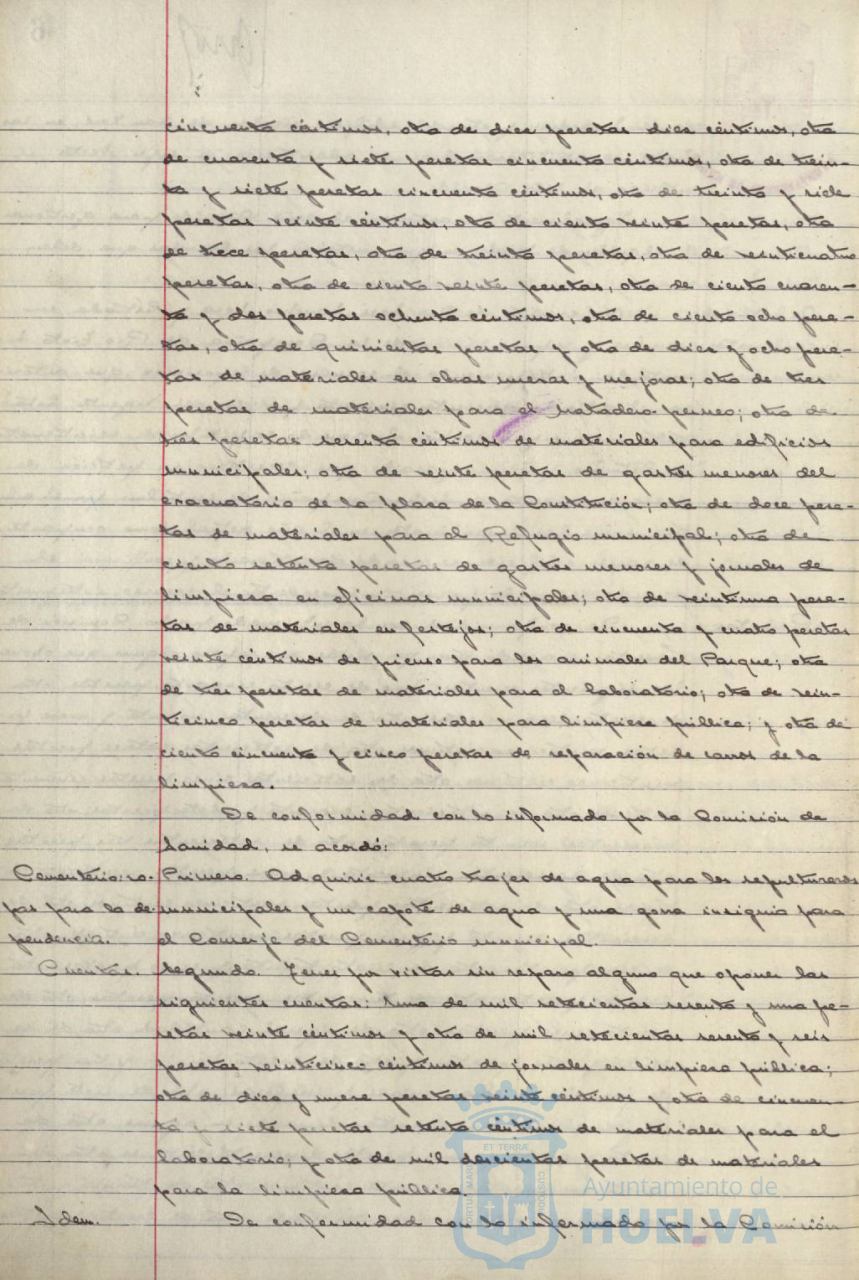 cincuenta céntimos, otra de diez pesetas diez céntimos, otra
de cuarenta y siete pesetas cincuenta céntimos, otra de trein-
ta y siete pesetas cincuenta céntimos, otra de treinta y siete
pesetas veinte céntimos, otra de ciento veinte pesetas, otra
de trece pesetas, otra de treinta pesetas, otra de veinticuatro
pesetas, otra de ciento veinte pesetas, otra de ciento cuaren-
ta y dos pesetas ochenta céntimos, otra de ciento ocho pese-
tas, otra de quinientas pesetas y otra de diez y ocho pese-
tas de materiales en obras nuevas y mejoras; otra de tres
pesetas de materiales para el matadero perneo; otra de
tres pesetas sesenta céntimos de materiales para edificios
municipales; otra de veinte pesetas de gastos menores del
evacuatorio de la plaza de la Constitución; otra de doce pese-
tas de materiales para el Refugio municipal; otra de
ciento setenta pesetas de gastos menores y jornales de
limpieza en oficinas municipales; otra de veintiuna pese-
tas de materiales en festejos; otra de cincuenta y cuatro pesetas
veinte céntimos de pienso para los animales del Parque; otra
de tres pesetas de materiales para el laboratorio; otra de vein-
ticinco pesetas de materiales para limpieza pública; y otra de
ciento cincuenta y cinco pesetas de reparación de carros de la
limpieza.
De conformidad con lo informado por la Comisión de
Sanidad, se acordó:
Cementerio: ro-
pas para la de-
pendencia.
Primero. Adquirir cuatro trajes de agua para los sepultureros
municipales y un capote de agua y una gorra insignia para
el Conserje del Cementerio municipal.
Cuentas.
Segundo. Tener por vistas sin reparo alguno que oponer las
siguientes cuentas: Una de mil setecientas sesenta y una pe-
setas veinte céntimos y otra de mil setecientas sesenta y seis
pesetas veinticinco céntimos de jornales en limpieza pública;
otra de diez y nueve pesetas veinte céntimos y otra de cincuen-
ta y siete pesetas setenta céntimos de materiales para el
laboratorio; y otra de mil doscientas pesetas de materiales
para la limpieza pública.
Idem.
De conformidad con lo informado por la Comisión
Ayuntamiento de
HUELVA